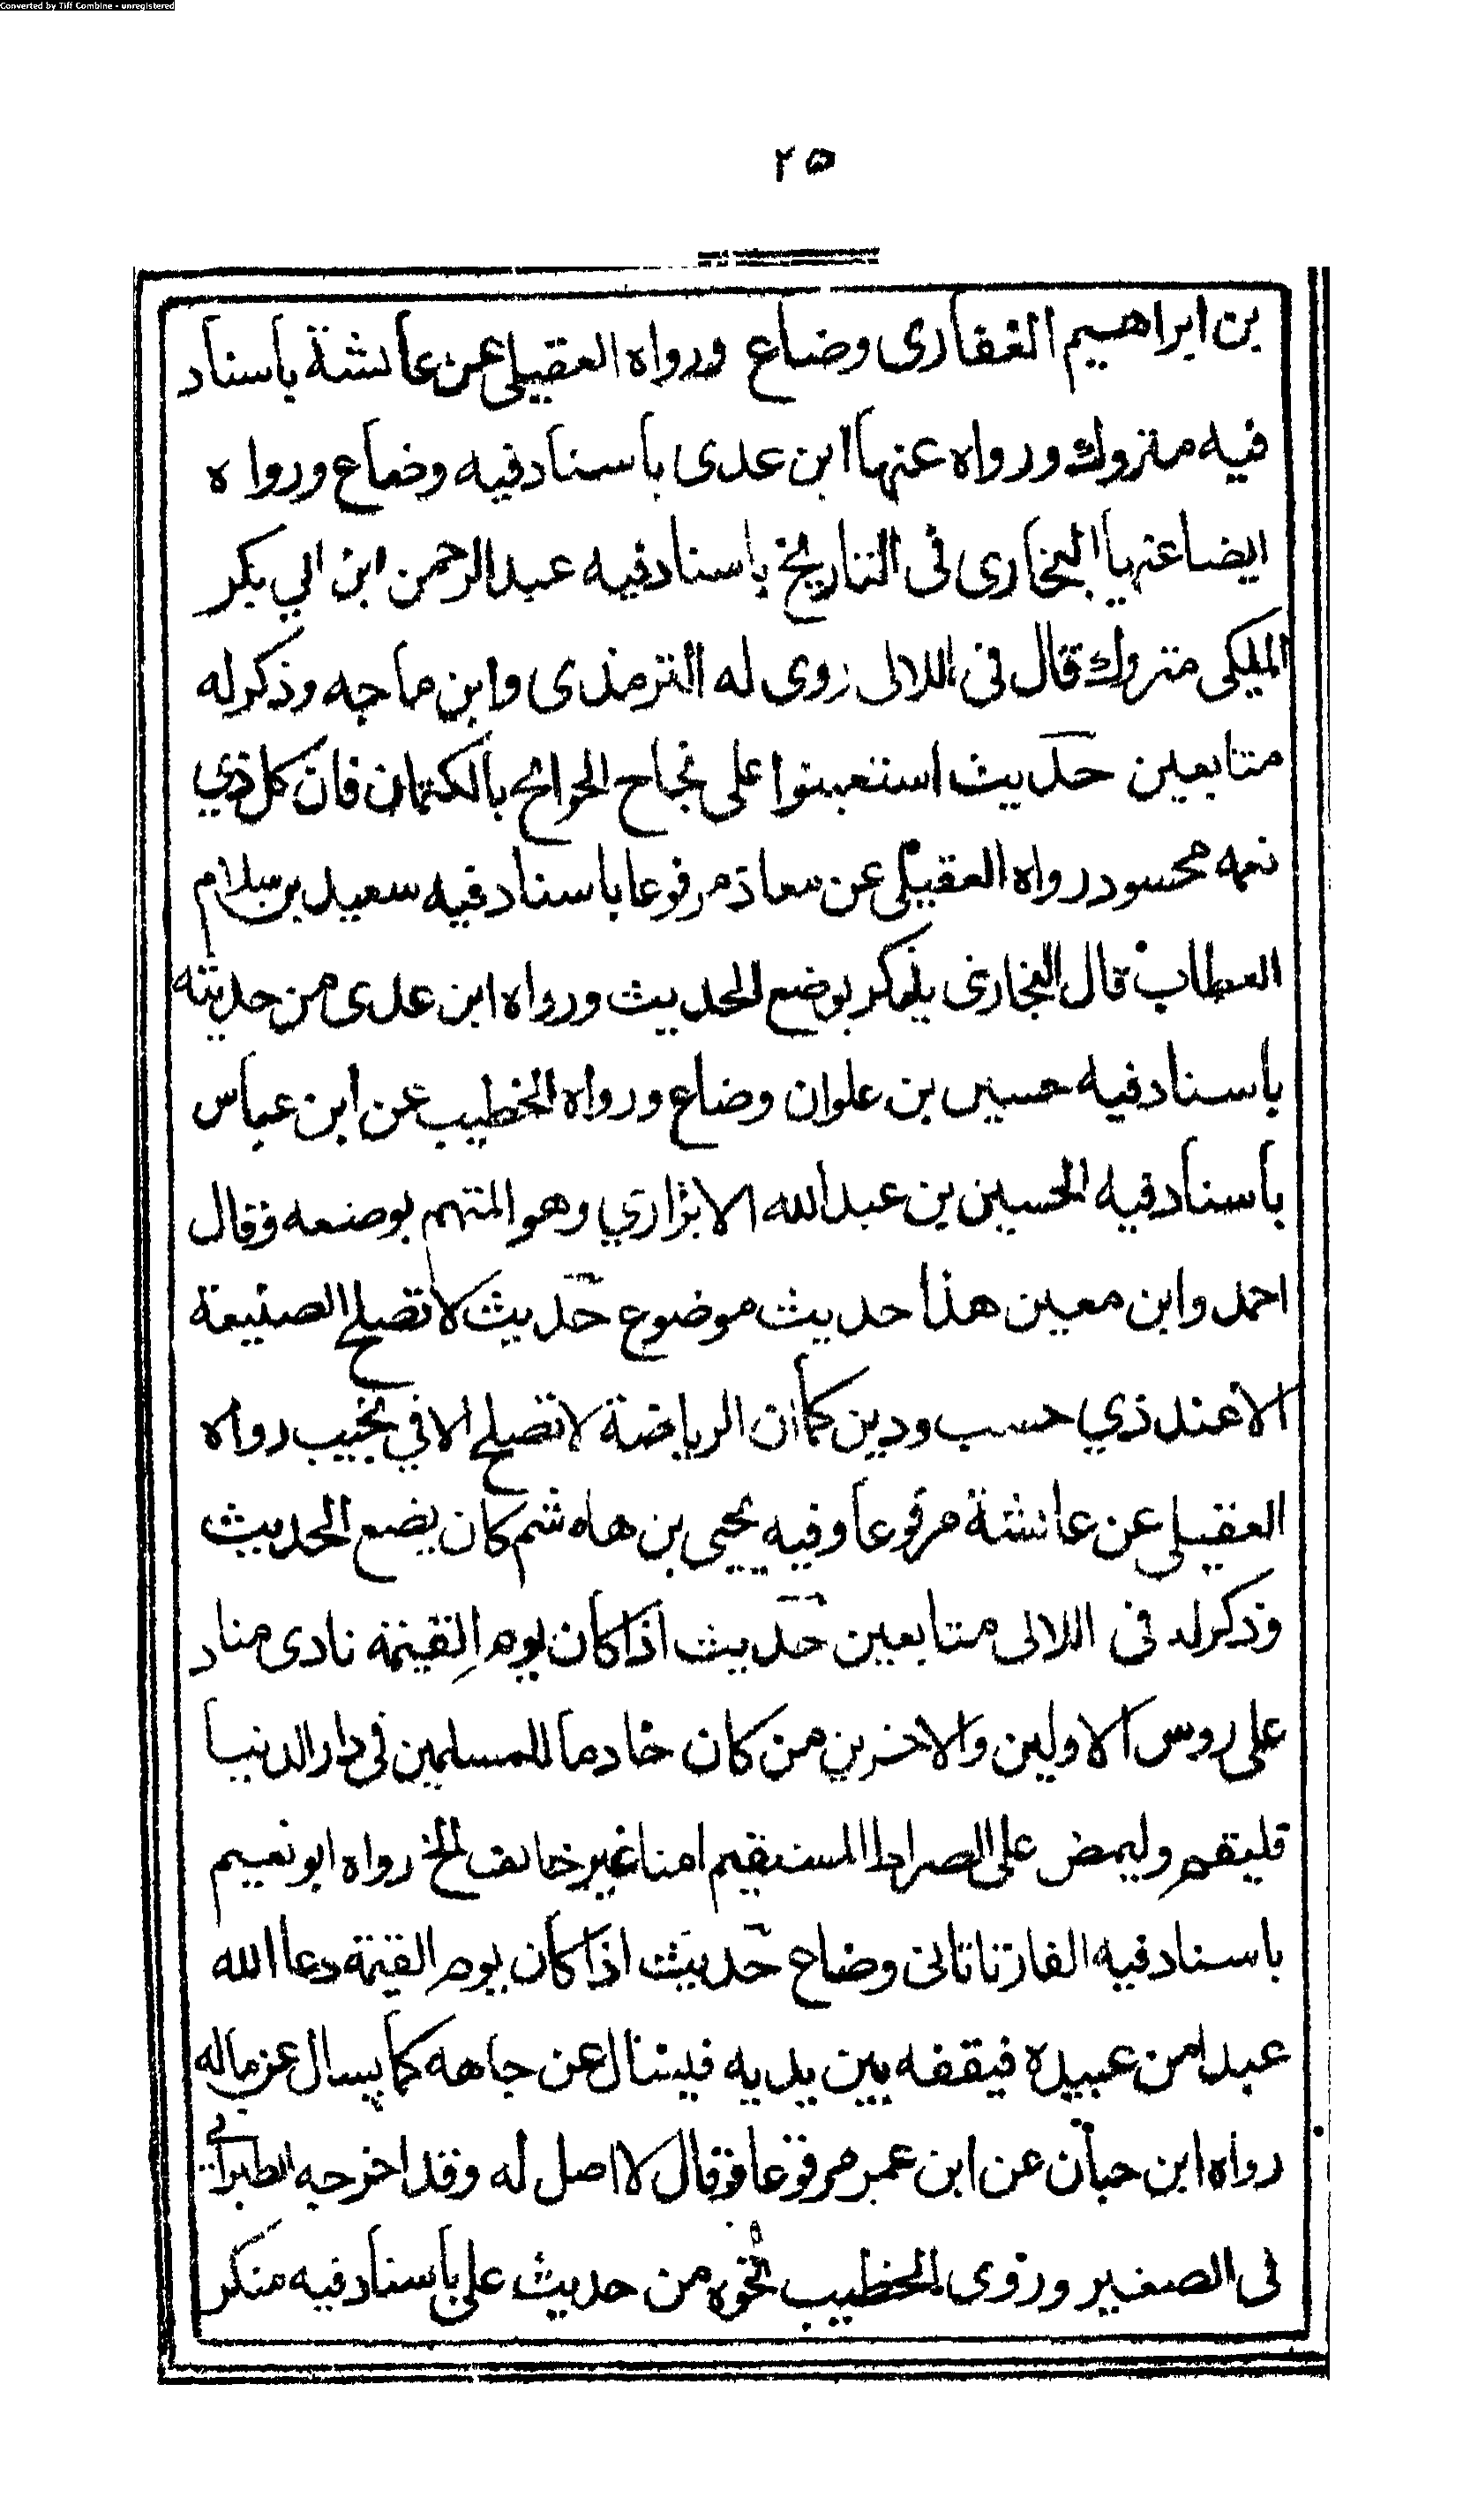 Converted by Tiff Combine - unregistered
٢٥
بن ابراهيم الغفارى وضاع ورواه العقيلى عن عائشة باسناد
فيه متروك ورواه عنها ابن عدى باسناد فيه وضاع ورواه
ايضا عنها البخارى فى التاريخ باسناد فيه عبد الرحمن ابن ابي بكر
المليكى متروك قال فى اللالى روى له الترمذى وابن ماجه وذكر له
متابعين حديث استعينوا على نجاح الحوائج بالكتمان فان كل ذي
نعمه محسود رواه العقيلى عن معاذ مرفوعا باسناد فيه سعيد بن سلام
العطاب قال البخارى يذكر بوضع الحديث ورواه ابن عدى من حديثه
باسناد فيه حسين بن علوان وضاع ورواه الخطيب عن ابن عباس
باسناد فيه الحسين بن عبد الله الابزاري وهو المتهم بوضعه وقال
احمد وابن معين هذا حديث موضوع حديث لا تصلح الصنيعة
الا عند ذي حسب ودين كما ان الرياضة لا تصلح الا في نجيب رواه
العقيلى عن عائشة مرفوعا وفيه يحيى بن هاشم كان يضع الحديث
وذكر له فى اللالى متابعين حديث اذا كان يوم القيمة نادى مناد
على روس الاولين والاخرين من كان خادما للمسلمين فى دار الدنيا
فليقم وليمض على الصراط المستقيم امنا غير خائف الخ رواه ابو نعيم
باسناد فيه الفارتاتانى وضاع حديث اذا كان يوم القيمة دعا الله
عبدا من عبيده فيقفه بين يديه فيسال عن جاهه كما يسال عن ماله
رواه ابن حبان عن ابن عمر مرفوعا وقال لا اصل له وقد اخرجه الطبراني
فى الصغير وروى الخطيب نحوه من حديث على باسناد فيه منكر